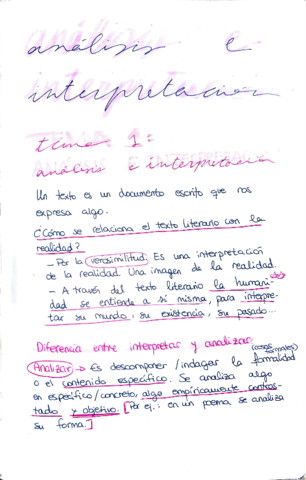 análisis e
interpretación
tema 1:
análisis e interpretación
Un texto es un documento escrito que nos
expresa algo.
¿Cómo se relaciona el texto literario con la
realidad?
- Por la verosimilitud. Es una interpretación
de la realidad. Una imagen de la realidad.
- A través del texto literario la humani-
dad se entiende a sí misma, para interpre-
tar su mundo, su existencia, su pasado...
Diferencia entre interpretar y analizar
(cosas formales)
Analizar → Es descomponer / indagar la formalidad
o el contenido específico. Se analiza algo
en específico/concreto, algo empíricamente contras-
tado y objetivo. [Por ej.: en un poema se analiza
su forma.]